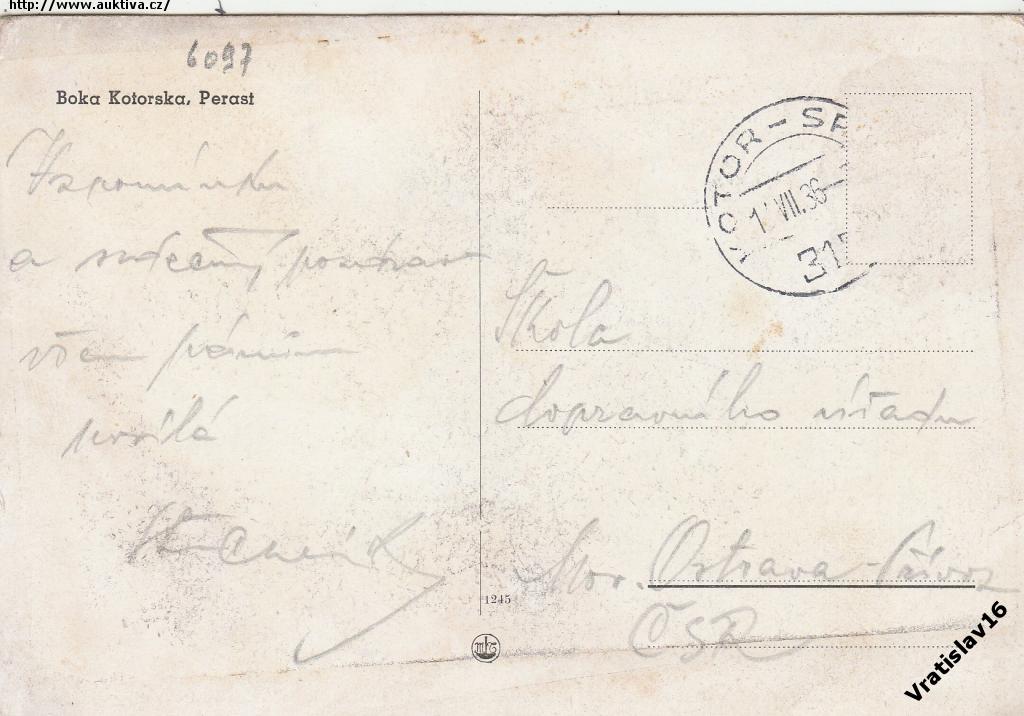 http://www.auktiva.cz/
6097
Boka Kotorska, Perast
Vzpomínku
a srdečný pozdrav
všem pánům
posílá
KOTOR - SP
VIII. 36
Škola
dopravního úřadu
Mor. Ostrava - Přívoz
ČSR
1245
Vratislav16